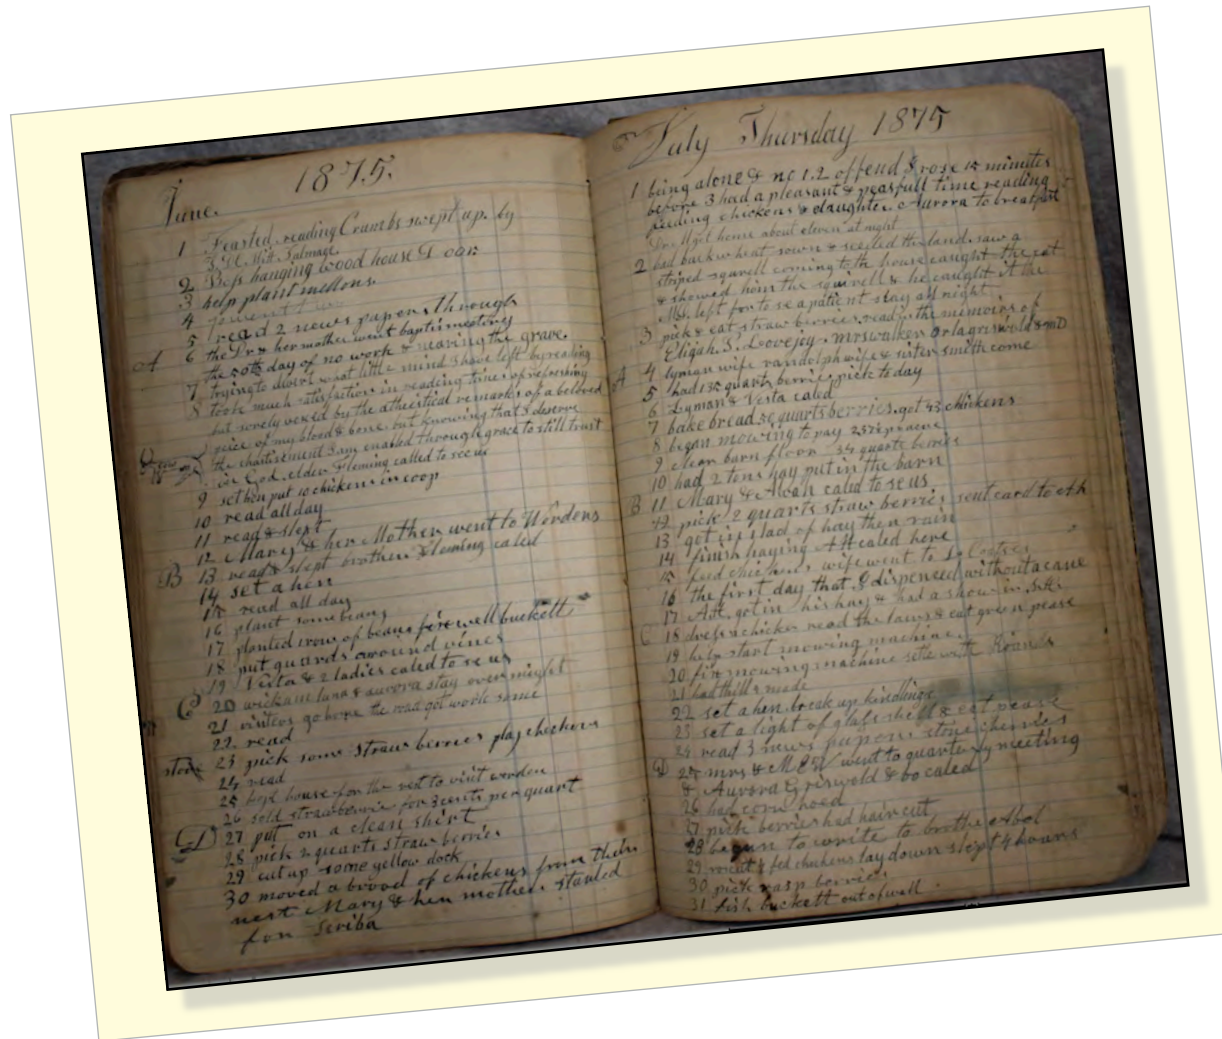 June. 1875.
1 Feasted reading Crumbs swept up. by
T. De Witt Talmage.
2 hanging wood house Door
3 help plant mellons.
4
5 read 2 news papers through
6 the Dr & her mother went baptis meeting
A the 50th day of no work & nearing the grave.
7 trying to divert what little mind I have left by reading
8 took much satisfaction in reading times of refreshing
but sorely vexed by the atheistical remarks of a beloved
peice of my blood & bone. but knowing that I deserve
the chastisement I am enabled through grace to still trust
in God. elder Fleming called to see us
9 set hen put 10 chickens in coop
10 read all day
11 read & slept
12 Mary & her Mother went to Wordens
B 13 read & slept brother Fleming caled
14 set a hen
15 read all day
16 plant some beans
17 planted 1 rows of beans fix well buckett
18 put guards around vines
19 Vesta & 2 ladies caled to se us
C 20 wickam luna & aurora stay over night
21 visitors go home the road got work some
22 read
23 pick some straw berries play chickens
24 read
25 kept house for the rest to visit worden
26 sold strawberrie for 3 cents per quart
D 27 put on a clean shirt
28 pick 2 quarts straw berries
29 cut up some yellow dock
30 moved a brood of chickens from their
nest Mary & her mother started
for Scriba
July Thursday 1875
1 being alone & no 1.2. offend I rose 15 minutes
before 3 had a pleasant & peasfull time reading
feeding chickens & daughter Aurora to breakfast
Dr. Mget home about eleven at night
2 had buckwheat sown & seeded the land. saw a
striped squrell coming to the house caught the cat
& showed him the squirell & he caught it the
Mrs. left for to se a patient stay all night
3 pick & eat straw berries. read in the memoirs of
Elijah. P. Lovejoy. mrs walker Orla griswold & mD
A 4 lyman wife randolph wife & sister smith come
5 had 135 quarts berries pick to day
6 Lyman & Vesta caled
7 bake bread 50 quarts berries. got 43 chickens
8 began mowing to pay
9 clean barn floor 34 quarts berries
10 had 2 tons hay put in the barn
B 11 Mary & caled to se us
12 pick 2 quarts straw berries sent card to
13 got in 1 lad of hay then rain
14 finish haying AH caled here
15 feed chickens wife went to
16 the first day that I dispensed without a cane
17 AH. got in his hay & had a show in
C 18 dress a chicken read the laws & eat green pease
19 help start mowing machine.
20 fix mowing machine setle with
21 had thills made
22 set a hen. break up kindlings
23 set a light of glass shell & eat pease
24 read 3 news papers stone cherries
D 25 mrs & went to quarterly meeting
& Aurora Griswold & bo caled
26 had corn hoed
27 pick berries had hair cut
28 begun to write to brothe Abel
29 & fed chickens lay down slept 4 hours
30 pick rasp berries
31 fish buckett out of well